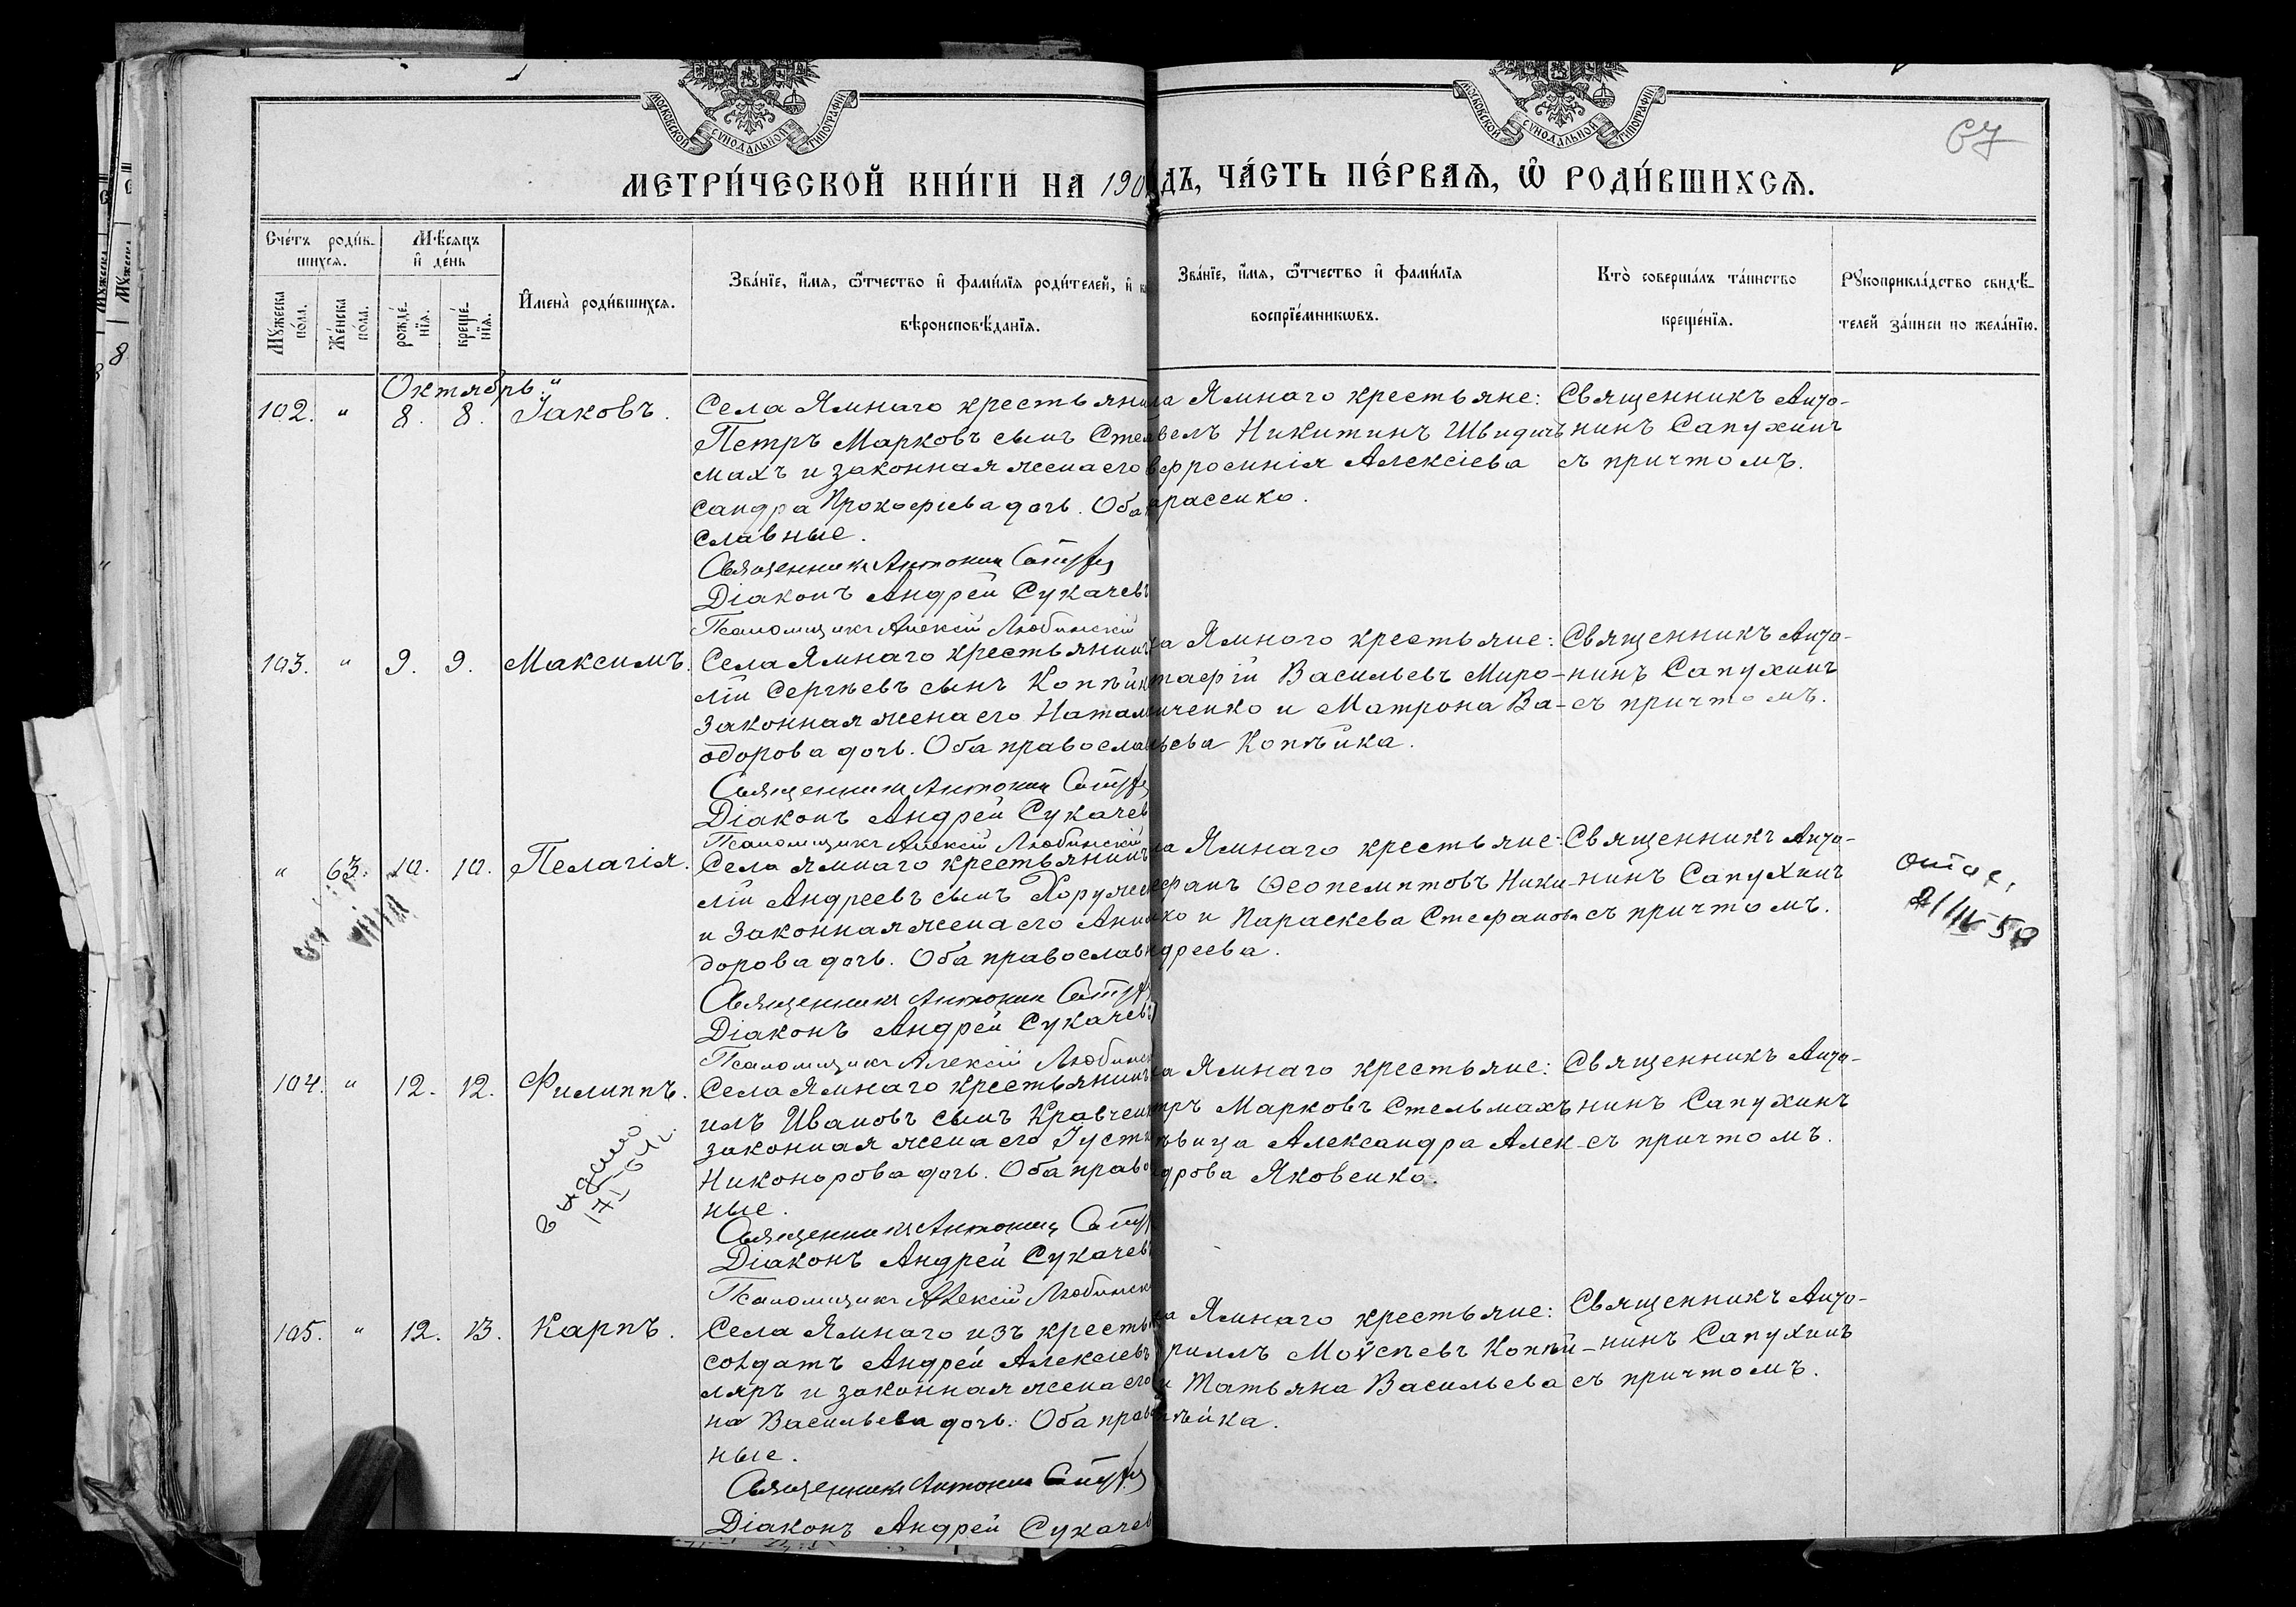 МОСКОВСКОЙ СѴНОДАЛЬНОЙ ТИПОГРАФІИ
МОСКОВСКОЙ СѴНОДАЛЬНОЙ ТИПОГРАФІИ
67
МЕТРИ́ЧЕСКОЙ КНИ́ГИ НА 190
ДЪ, ЧА́СТЬ ПЕ́РВАѦ, Ѡ҆ РОДИ́ВШИХСѦ.
Сче́тъ роди́в-
шихсѧ.
Мꙋ́жеска по́ла.
Же́нска по́ла.
Мѣ́сѧцъ
и҆ де́нь
рожде́-
нїѧ.
креще́-
нїѧ.
И҆мена̀ роди́вшихсѧ.
Зва́нїе, и҆́мѧ, ѻ҆́тчество и҆ фами́лїѧ роди́телей, и҆
вѣроисповѣ́данїѧ.
Зва́нїе, и҆́мѧ, ѻ҆́тчество и҆ фами́лїѧ
воспрїе́мникѡвъ.
Кто̀ соверша́лъ та́инство
креще́нїѧ.
Рꙋкоприкла́дство свидѣ́-
телей за́писи по жела́нїю.
Октябрь.
102. " 8. 8. Іаковъ.
Села Ямнаго крестьянин
Петръ Марковъ сынъ Стел
махъ и законная жена его
сандра Прокофіева дочь. Оба
славные.
Священникъ Антонин
Діаконъ Андрей Сукачевъ
Псаломщикъ Алексій Любинскій
ла Ямнаго крестьяне:
велъ Никитинъ Швидич
вфросинія Алексіева
арасенко.
Священникъ Анто-
нинъ Сапухинъ
съ причтомъ.
103. " 9. 9. Максимъ.
Села Ямнаго крестьянин
лій Сергѣевъ сынъ Копѣйк
законная жена его Натал
одорова дочь. Оба правосла
Священникъ Антонин
Діаконъ Андрей Сукачев
Псаломщикъ Алексій Любинскій
ла Ямного крестьяне:
тафій Васильевъ Миро-
иченко и Матрона Ва-
льева Копѣйка.
Священникъ Анто-
нинъ Сапухинъ
съ причтомъ.
" 63. 10. 10. Пелагія.
Села Ямнаго крестьянинъ
лій Андреевъ сынъ Хоруже
и законная жена его Анн
дорова дочь. Оба православ
Священникъ Антонин
Діаконъ Андрей Сукачевъ
Псаломщикъ Алексій Любинск
ла Ямнаго крестьяне:
ефанъ Ѳеопемптовъ Ники-
ко и Параскева Стефанова
ндреева.
Священникъ Анто-
нинъ Сапухинъ
съ причтомъ.
104. " 12. 12. Филиппъ.
Села Ямнаго крестьянинъ
илъ Ивановъ сынъ Кравчен
законная жена его Густи
Никонорова дочь. Оба право
ные.
Священникъ Антонин
Діаконъ Андрей Сукачевъ
Псаломщикъ Алексій Любинск
ла Ямнаго крестьяне:
тръ Марковъ Стельмахъ
ѣвица Александра Алек-
дрова Яковенко.
Священникъ Анто-
нинъ Сапухинъ
съ причтомъ.
105. " 12. 13. Карпъ.
Села Ямнаго изъ кресть
солдатъ Андрей Алексіевъ
ляръ и законная жена его
на Васильева дочь. Оба прав
ные.
Священникъ Антонин
Діаконъ Андрей Сукачев
ла Ямнаго крестьяне:
риллъ Моѵсѣевъ Копѣй-
и Татьяна Васильева
пѣйка.
Священникъ Анто-
нинъ Сапухинъ
съ причтомъ.